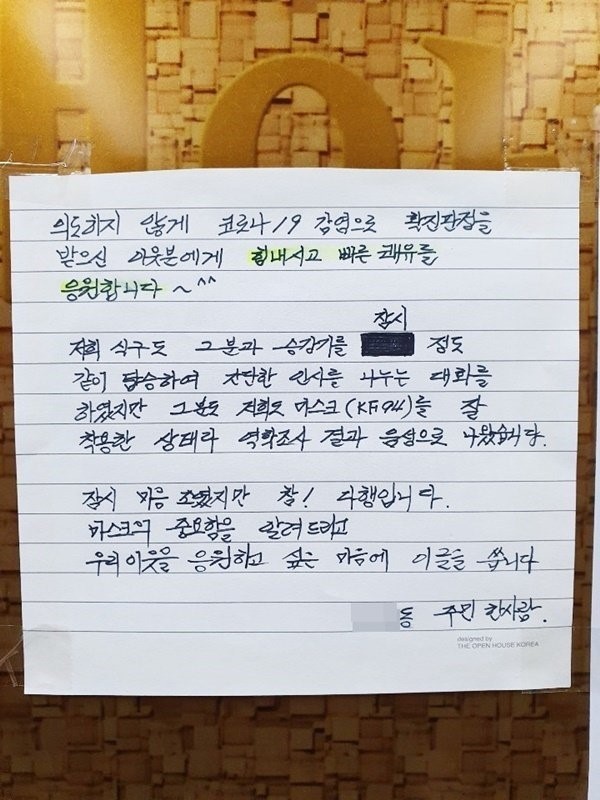 의도하지 않게 코로나19 감염으로 확진판정을
받으신 이웃분에게 힘내시고 빠른 쾌유를
응원합니다 ~^^
잠시
저희 식구도 그분과 승강기를 정도
같이 탑승하여 간단한 인사를 나누는 대화를
하였지만 그분도 저희도 마스크(KF94)를 잘
착용한 상태라 역학조사 결과 음성으로 나왔습니다.
잠시 마음 조렸지만 참! 다행입니다.
마스크의 중요함을 알려드리고
우리이웃을 응원하고 싶은 마음에 이글을 씁니다
동 주민 한사람.
designed by
THE OPEN HOUSE KOREA